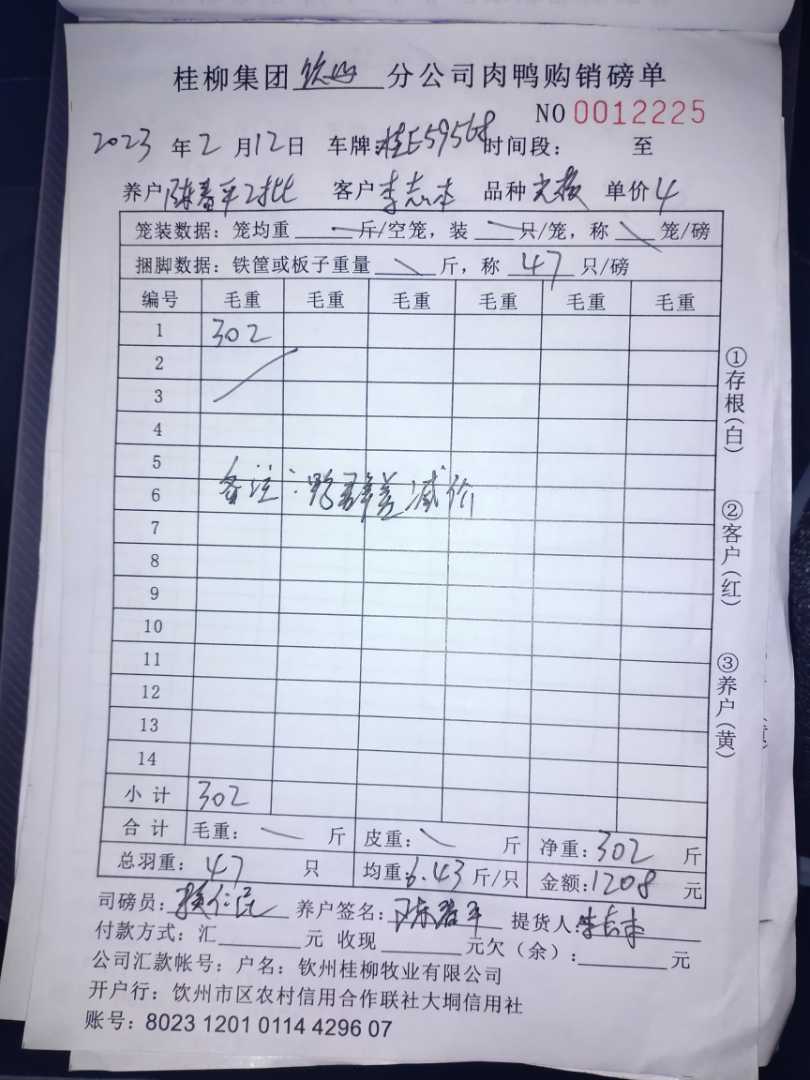 桂柳集团 钦州 分公司肉鸭购销磅单
NO 0012225
2023 年 2 月 12 日 车牌:桂E59568 时间段: 至
养户 陈春平2批 客户 李志本 品种 单价 4
笼装数据: 笼均重 斤/空笼, 装 只/笼, 称 笼/磅
捆脚数据: 铁筐或板子重量 斤, 称 47 只/磅
编号 毛重 毛重 毛重 毛重 毛重 毛重
1 302
2
3
4
5
6
备注:鸭群差减价
7
8
9
10
11
12
13
14
小 计 302
合 计 毛重: 斤 皮重: 斤 净重: 302 斤
总羽重: 47 只 均重: 6.43 斤/只 金额: 1208 元
司磅员: 养户签名: 陈春平 提货人: 李志本
付款方式: 汇 元 收现 元欠(余): 元
公司汇款帐号: 户名: 钦州桂柳牧业有限公司
开户行: 钦州市区农村信用合作联社大垌信用社
账号: 8023 1201 0114 4296 07
①存根(白)
②客户(红)
③养户(黄)